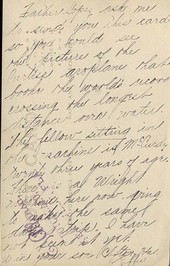 Father, you ask me
to send you this card
so you could see
the picture of the
Curtiss aeroplane that
broke the world's record
crossing the longest
distance over water.
The fellow setting in
the machine is McCurdy
twenty three years of age.
There is a Wright
here now going
to make the same
trip, I have
not
your son